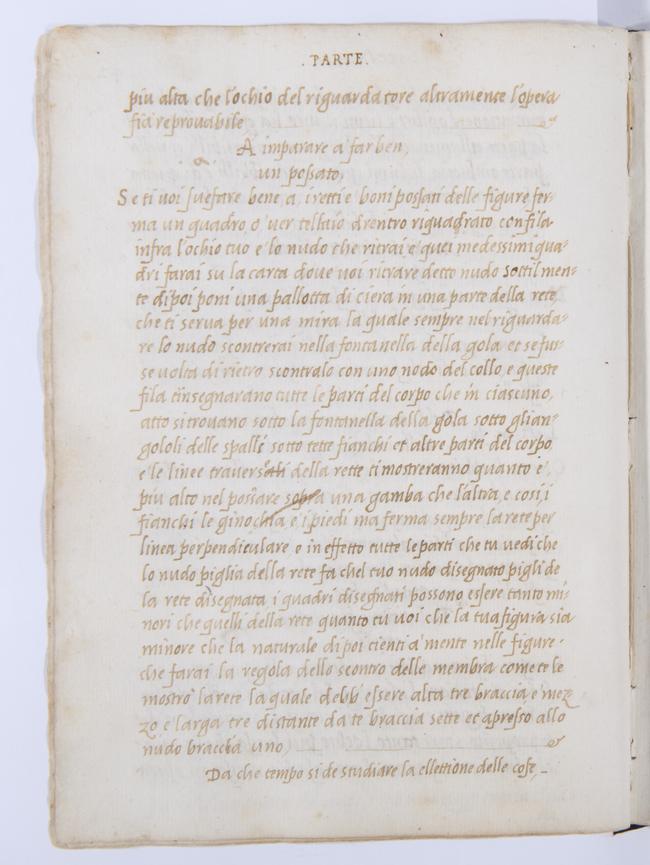 . PARTE .
piu alta che l'ochio del riguardatore altramente l'opera
fia reprovabile
A imparare a far ben,
un possato,
Se ti voi suefare bene, a, i retti e boni possati delle figure fer-
ma un quadro, o ver tellaio drentro riguadrato con fila
infra l'ochio tuo e lo nudo che ritrai e quei medessimi qua-
dri farai su la carta dove voi ritrare detto nudo sottilmen-
te di poi poni una pallotta di ciera in una parte della rete
che ti serva per una mira la quale sempre nel riguarda-
re lo nudo scontrerai nella fontanella della gola et se fus-
se volta di rietro scontralo con uno nodo del collo, e queste
fila t'insegnarano tutte le parti del corpo che in ciascuno,
atto si trouano sotto la fontanella della gola sotto gl'ian-
gololi delle spalle sotto tette fianchi et altre parti del corpo
e le linee traversali della rette ti mostreranno quanto e'
piu alto nel possare sopra una gamba che l'altra, e cosi i
fianchi le ginochia, e i piedi ma ferma sempre la rete per
linea perpendiculare e in effetto tutte le parti che tu vedi che
lo nudo piglia della rete fa chel tuo nudo disegnato pigli de
la rete disegnata, i quadri disegnati possono essere tanto mi-
nori che quelli della rete quanto tu voi che la tua figura sia
minore che la naturale di poi tienti a' mente nelle figure
che farai la regola dello scontro delle membra come te le
mostro' la rete la quale debb'essere alta tre braccia e mez-
zo e larga tre distante da te braccia sette et apresso allo
nudo braccia uno
Da che tempo si de studiare la ellettione delle cose,